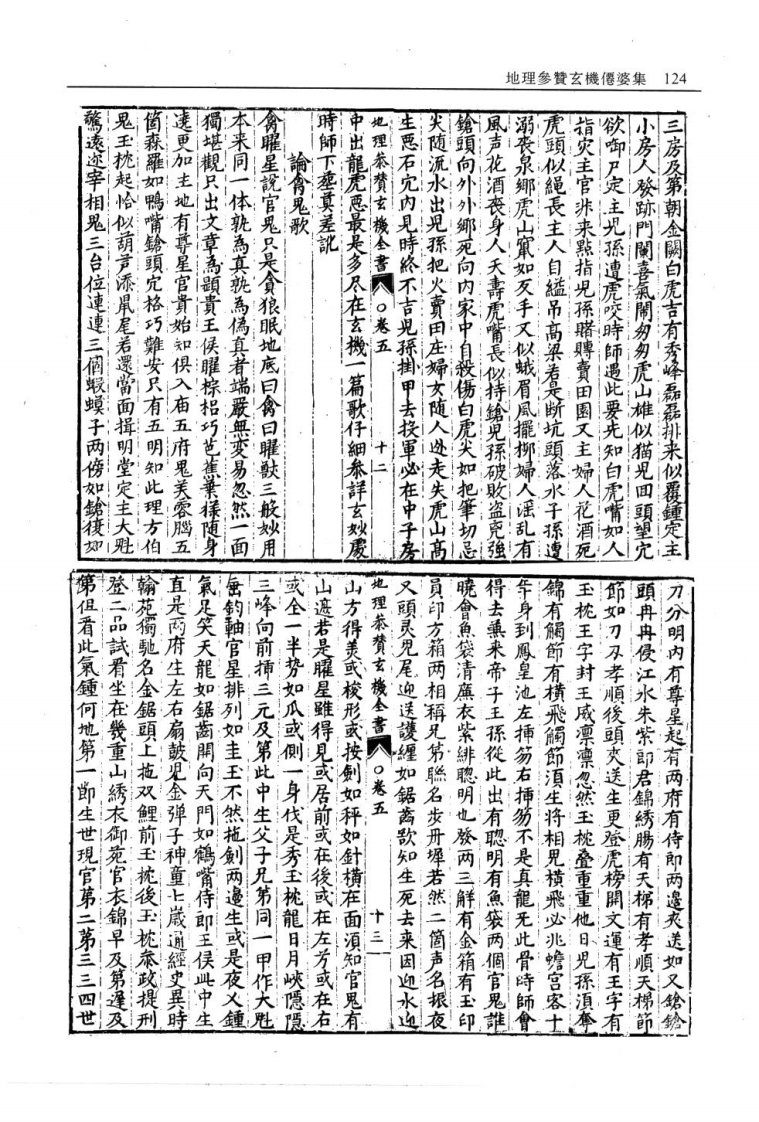 地理參贊玄機僊婆集 124
三房及第朝金闕白虎吉有秀峰磊磊排来似覆鍾定主
小房人發跡門闌喜氣鬧匆匆虎山雄似猫児回頭望穴
欲啣尸定主児孫遭虎咬時師遇此要先知白虎嘴如人
指灾主官非来點指児孫賭賻賣田園又主婦人花酒死
虎頭似繩長主人自縊吊高梁若是断坑頭落水子孫遭
溺喪泉鄉虎山竄如反手又似蛾眉風擺栁婦人滛乱有
風声花酒喪身人夭壽虎嘴長似持鎗児孫破敗盗児強
鎗頭向外外鄉死向内家中自殺傷白虎尖如把筆切忌
尖随流水出児孫把火賣田庄婦女随人迯走失虎山高
生悪石穴内見時終不吉児孫掛甲去投軍必在中子房
地理叅贊玄機全書 ○卷五 十二
中出龍虎悪最是多尽在玄機一篇歌仔細叅詳玄妙處
時師下塟莫差訛
論禽鬼歌
禽曜星說官鬼只是貪狼眠地底曰禽曰曜獸三般妙用
本来同一体孰為真孰為偽真者端嚴無変易忽然一面
獨堪觀只出文章為顯貴王侯曜棕梠巧芭蕉葉様随身
遶更加主地有尊星官貴始知俱入庙五府鬼芙蓉腦五
箇森羅如鴨嘴鎗頭穴格巧難安只有五明知此理方伯
鬼玉枕起恰似葫芦添鼠尾若還當面揖明堂定主大魁
驚遠迩宰相鬼三台位連連三個蝦蟆子两傍如鎗復如
刀分明内有尊星起有两府有侍郎两邉夾送如叉鎗鎗
頭冉冉侵江水朱紫郎君錦綉腸有天梯有孝順天梯節
節如刀刃孝順後頭夾送生更登虎榜開文運有王字有
玉枕王字封王威凛凛忽然玉枕叠重重他日児孫須奪
錦有觸節有橫飛觸節須生将相児横飛必兆蟾宫客十
年身到鳳皇池左揷笏右揷笏不是真龍无此骨時師會
得去薫来帝子王孫從此出有聪明有魚袋两個官鬼誰
曉會魚袋清廉衣紫緋聪明也發两三觧有金箱有玉印
員印方箱两相稱兄第聯名步丹墀若然二箇声名振夜
又頭灵鬼尾迎送護纏如鋸齒歌知生死去来因迎水迎
地理叅贊玄機全書 ○卷五 十三
山方得美或梭形或按劍如秤如針橫在面須知官鬼有
山遮若是曜星雖得見或居前或在後或在左芳或在右
或全一半势如瓜或側一身伐是秀玉枕龍日月峽隱隱
三峰向前揷三元及第此中生父子兄第同一甲作大魁
垂釣軸官星排列如圭玉不然拖劍两邉生或是夜乂鍾
氣足笑天龍如鋸齒開向天門如鶴嘴侍郎王侯此中生
直是两府生左右扇皷児金弹子神童七歲通經史異時
翰苑獨馳名金鋸頭上拖双鯉前玉枕後玉枕叅政提刑
登二品試看坐在幾重山綉衣御苑官衣錦早及第遲及
第但看此氣鍾何地第一節生世現官第二第三三四世